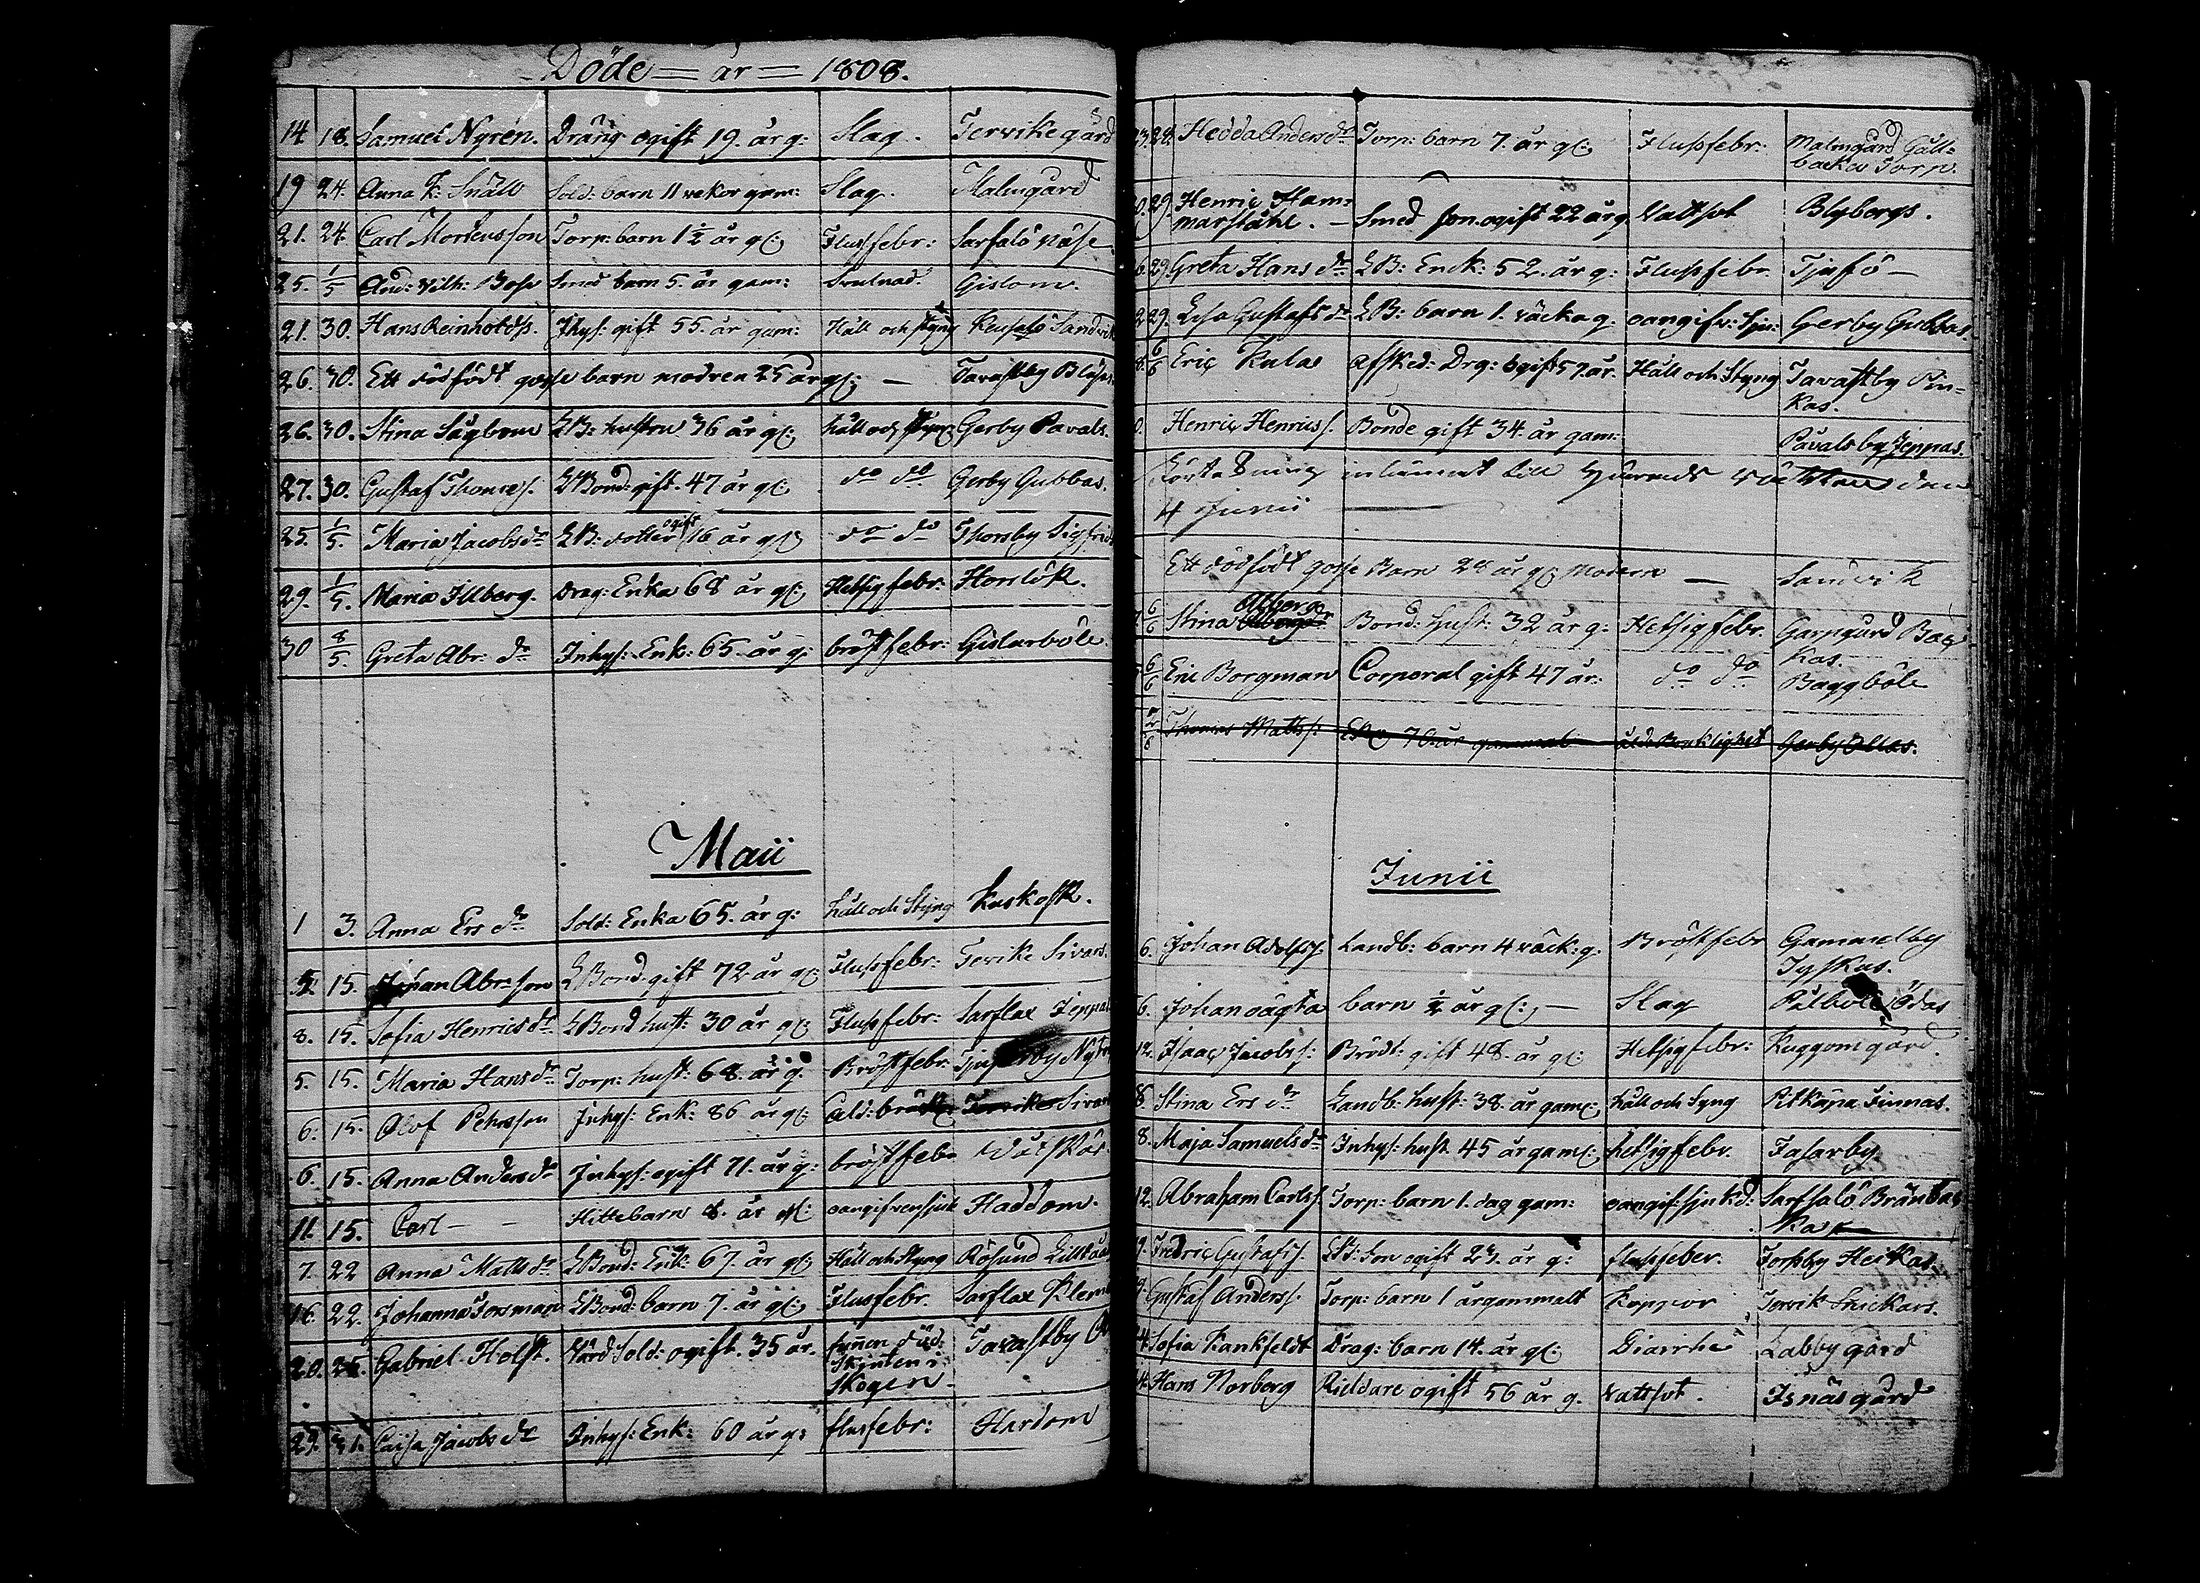 Döde = år = 1808.
14 18. Samuel Nyrén. Dräng ogift 19. år g: Slag. Tervike gård
19 24. Anna K: Snäll Sold: barn 11 vekor gam: Slag. Malmgård
21. 24. Carl Mortensson Torp: barn 1 1/2 år gl: Flussfebr: Sarfsalö näse
25. 1/5 And: Vilh: Bose Smed barn 5. år gam: Gislom.
21. 30. Hans Reinholdss. Inhys: gift 55. år gam: Håll och styng Keusalö Sandvik
26. 30. Ett dödfödt gosse barn modren 25 år gl: — Tavastby
26. 30. Stina Sågbom LB: hustru 36 år gl: håll och styng Gerby Pavals.
27. 30. Gustaf Thomass. LBond: gift 47 år gl: do do Gerby Gubbas.
25. 1/5. Maria Jacobs dr LB: dotter ogift 16 år gl: do do Thorsby Sigfrids
29. 1/5. Maria Illberg. Drag: Enka 68 år gl: Hetsigfebr: Horslök.
30 8/5. Greta Abr: dr Inhys: Enk: 65 år g: bröstfebr: Gislarböle
Maii
1 3. Anna Ers dr Sold: Enka 65. år g: håll och Styng Kuskosk.
5. 15. Johan Abr:sson LBond: gift 72 år gl: Flussfebr: Tervike Sivars.
8. 15. Sofia Henrics dr LBond hust: 30 år gl: Flussfebr: Sarflax Jeppas
5. 15. Maria Hans dr Torp: hust: 68. år g. Bröstfebr.
6. 15. Olof Pehrsson Inhys: Enk: 86 år gl: Tervike Sivars
6. 15. Anna Anders dr Inhys: ogift 71. år g: bröstfebr Våtskär
11. 15. Carl — — Hittebarn 8. år gl: oangifven sjuk Haddom.
7. 22 Anna Matts dr LBond: Enk: 67. år gl: Håll och Styng Rösund Lillkåas
16. 22. Johanna Forsman LBond: barn 7. år gl: Flusfebr. Sarflax Klem
20. 25. Gabriel Holst. Vård Sold: ogift. 35 år. funnen död: Tavastby
skjuten i
Skogen.
29. 31. Caisa Jacobs dr Inhys: Enk: 60 år g: flusfebr: Hardom
23. 28. Hedda Anders dr Torp: barn 7. år gl: Flussfebr: Malmgård Gåll=
backa Torp.
29. Henric Ham=
marståhl. — Smed son ogift 22 år g Vattsot Blybergs.
29. Greta Hans dr LB: Enck: 52. år g: Flussfebr. Tjufö —
29. Lisa Gustafs dr LB: barn 1. väcka g. oangifv: sju: Gerby Gubbas.
6/6 Eric Kula afsked: Drg: ogift 57 år. Håll och Styng Tavastby Pin=
kas.
Henric Henrics s. Bonde gift 34. år gam: Påvalsby Jeppas.
den
4 Junii
Ett dödfödt gosse Barn 28 år gl: Modern — Sandvik
6/6 Stina Alberg Bond: hust: 32 år g: Hetsigfebr. Garpgård Bac
kas.
6/6 Eric Borgman Corporal gift 47 år: do do Baggböle
Thomas Matts s: 70 år gammal Gerby Ollas.
Junii
6. Johan Adolfs s. Landb: barn 4 väck: g. Bröstfebr Gammelby
Tyskas.
6. Johan oägta barn 1/2 år gl: — Slag Påtböle Ödas
12. Isaac Jacobs s: Brödt: gift 48. år gl: Hetsigfebr: Kuggom gård.
8 Stina Ers dr Landb: hust: 38. år gaml: håll och Syng Pitkäpä Finnas.
8. Maja Samuels dr Inhys: hust 45 år gaml: hetsigfebr. Fasarby.
12. Abraham Carls s. Torp: barn 1. dag gam: oangif: sjukd: Sarfsalö Bränbac
ka
9. Fredric Gustafs s. LB: Son ogift 23. år g: flussfeber. Torsby Heikas.
9. Gustaf Anders s. Torp: barn 1 år gammalt Koppor Tervik Snickars.
14. Sofia Rankfeldt Drag: barn 14. år gl: Diarrhe Labby gård
14. Hans Norberg Rietdare ogift 56 år g. vattsot. Isnäs gård